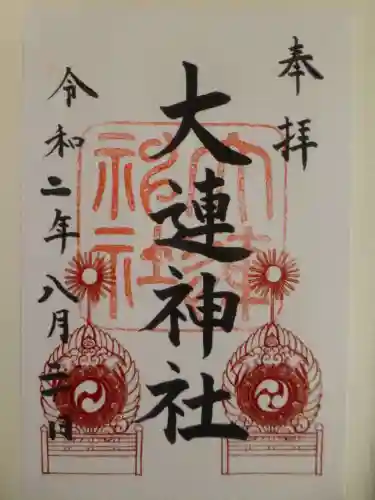 奉拝
大連神社
令和二年八月二日